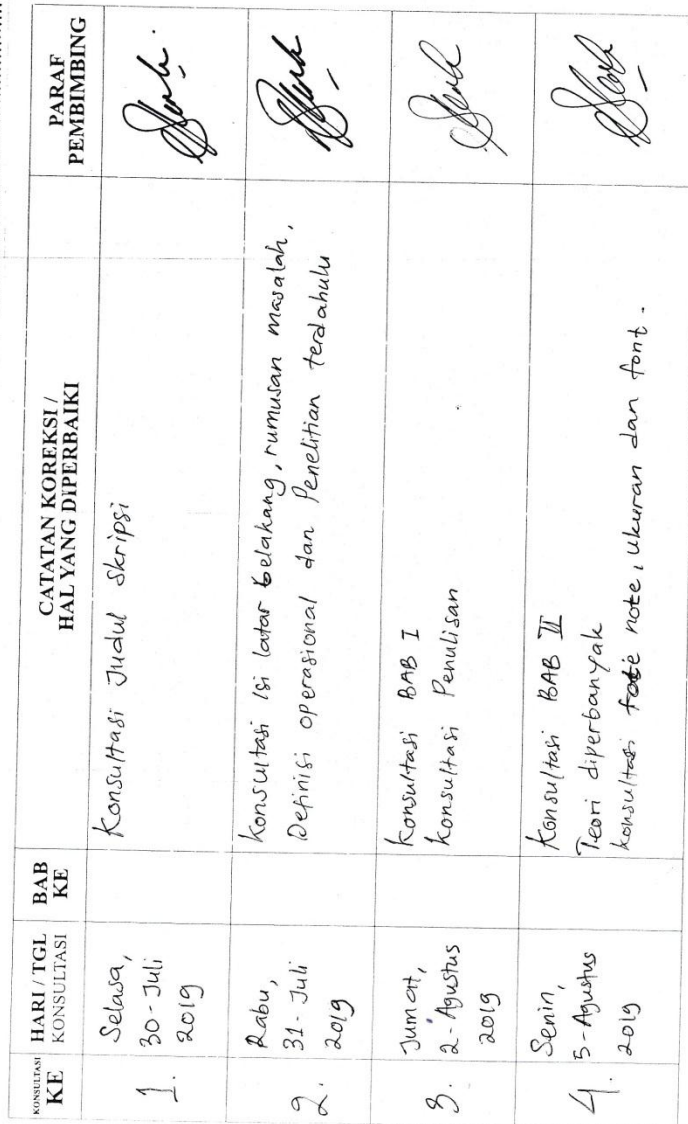 KONSULTASI
KE
HARI / TGL
KONSULTASI
BAB
KE
CATATAN KOREKSI /
HAL YANG DIPERBAIKI
PARAF
PEMBIMBING
1.
Selasa,
30-Juli
2019
Konsultasi Judul Skripsi
2.
Rabu,
31-Juli
2019
konsultasi Isi latar belakang, rumusan masalah,
Definisi operasional dan Penelitian terdahulu
3.
Jum'at,
2-Agustus
2019
konsultasi BAB I
konsultasi Penulisan
4.
Senin,
5-Agustus
2019
Konsultasi BAB II
Teori diperbanyak
konsultasi foote note, ukuran dan font.